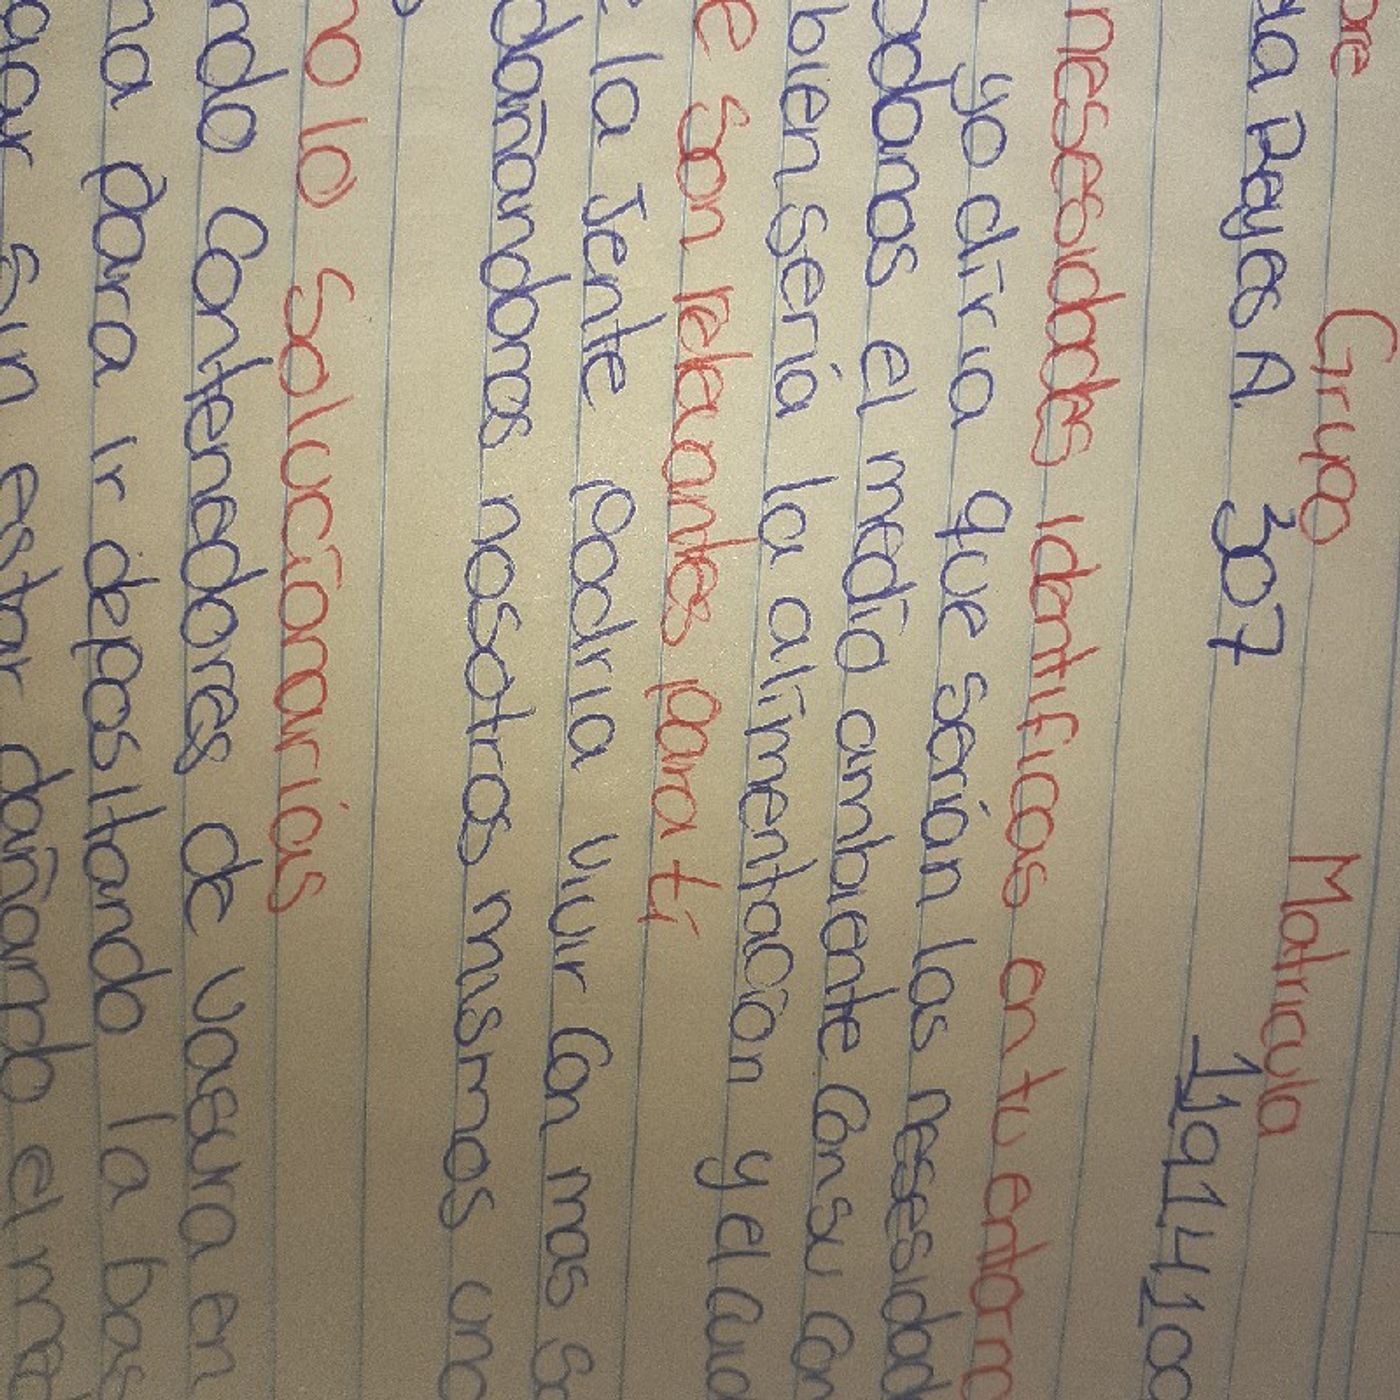 Grupo Matricula
Reyes A. 307 11914100
nesesidades identificas en tu entorno
yo diria que serían las nesesidad
el medio ambiente con su con
bien sería la alimentación y el cuid
e son relevantes para ti
la Jente podria vivir con mas sa
dañandonos nosotros mismos uno
no lo solucionarías
ndo contenedores de vasura en
na para ir depositando la bas
sin estar dañando el me